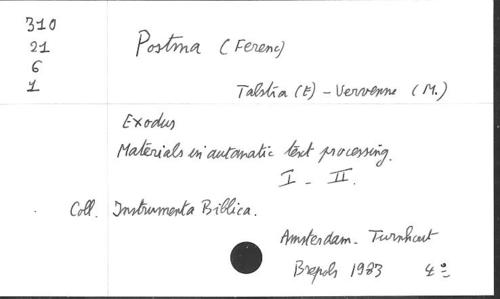 310
21
6
1
Postma (Ferenc)
Talstra (E) - Vervenne (M.)
Exodus
Materials in automatic text processing.
I - II.
Coll. Instrumenta Biblica.
Amsterdam - Turnhout
Brepols 1983 4º